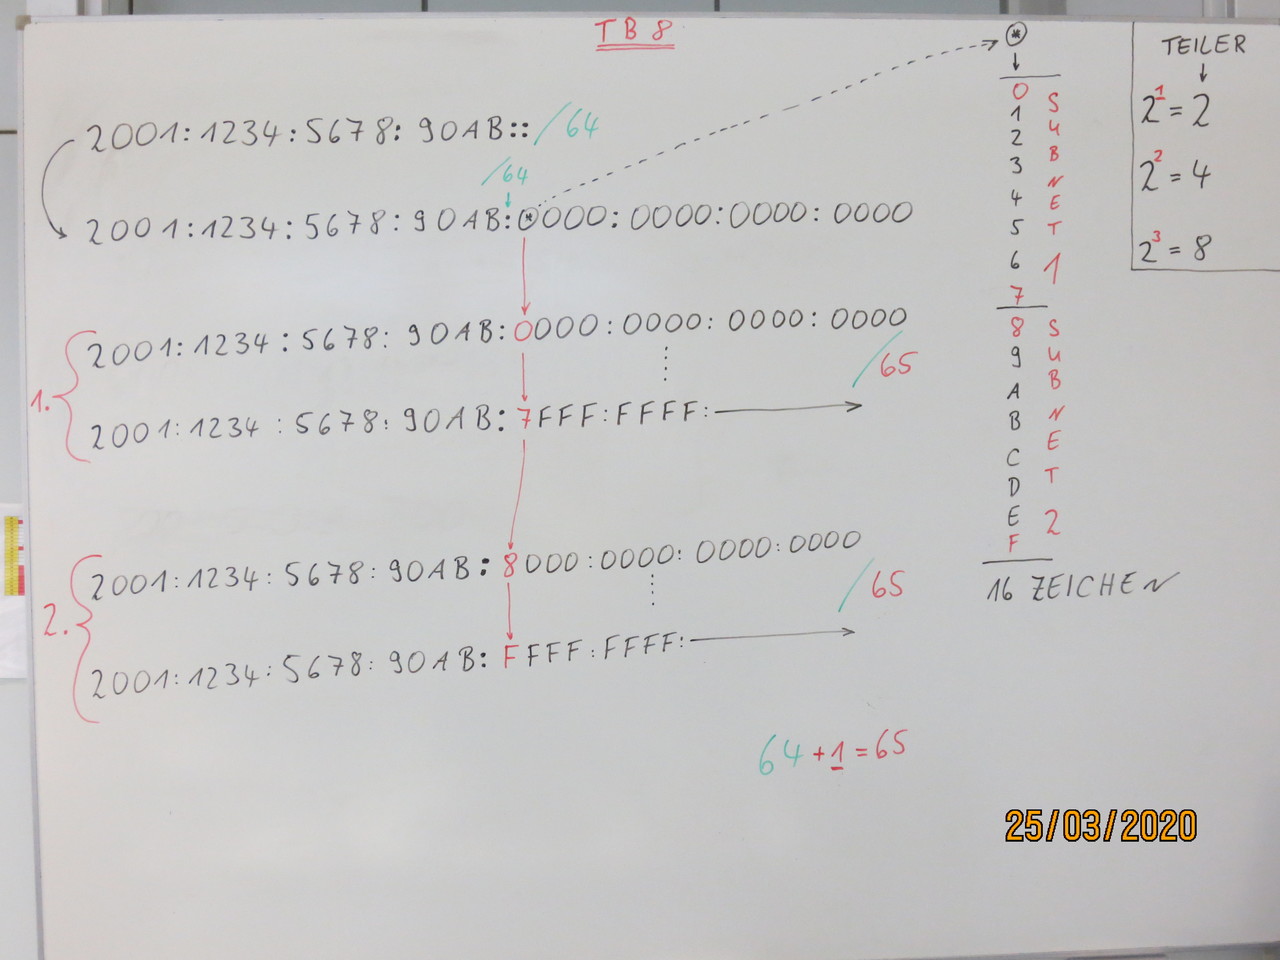 TB8
2001:1234:5678:90AB::/64
/64
2001:1234:5678:90AB:0000:0000:0000:0000
1.
2001:1234:5678:90AB:0000:0000:0000:0000
/65
2001:1234:5678:90AB:7FFF:FFFF:
2.
2001:1234:5678:90AB:8000:0000:0000:0000
/65
2001:1234:5678:90AB:FFFF:FFFF:
64+1=65
*
0
1
2
3
4
5
6
7
SUBNET 1
8
9
A
B
C
D
E
F
SUBNET 2
16 ZEICHEN
TEILER
2¹=2
2²=4
2³=8
25/03/2020